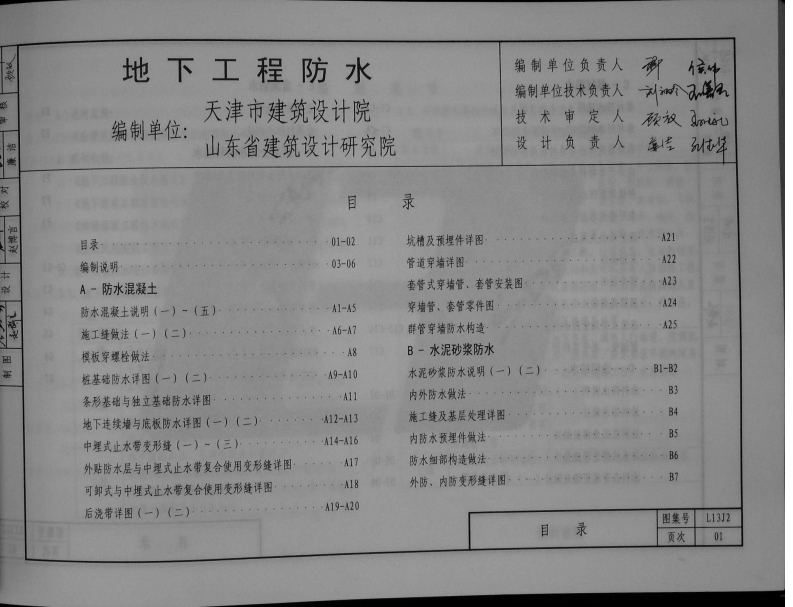 地下工程防水
编制单位:
天津市建筑设计院
山东省建筑设计研究院
编制单位负责人
编制单位技术负责人
技术审定人
设计负责人
目 录
目录 01-02
编制说明 03-06
A - 防水混凝土
防水混凝土说明（一）~（五） A1-A5
施工缝做法（一）（二） A6-A7
模板穿螺栓做法 A8
桩基础防水详图（一）（二） A9-A10
条形基础与独立基础防水详图 A11
地下连续墙与底板防水详图（一）（二） A12-A13
中埋式止水带变形缝（一）~（三） A14-A16
外贴防水层与中埋式止水带复合使用变形缝详图 A17
可卸式与中埋式止水带复合使用变形缝详图 A18
后浇带详图（一）（二） A19-A20
坑槽及预埋件详图 A21
管道穿墙详图 A22
套管式穿墙管、套管安装图 A23
穿墙管、套管零件图 A24
群管穿墙防水构造 A25
B - 水泥砂浆防水
水泥砂浆防水说明（一）（二） B1-B2
内外防水做法 B3
施工缝及基层处理详图 B4
内防水预埋件做法 B5
防水细部构造做法 B6
外防、内防变形缝详图 B7
目 录
图集号 L13J2
页次 01
审核
廉洁
校对
赵博言
设计
制图